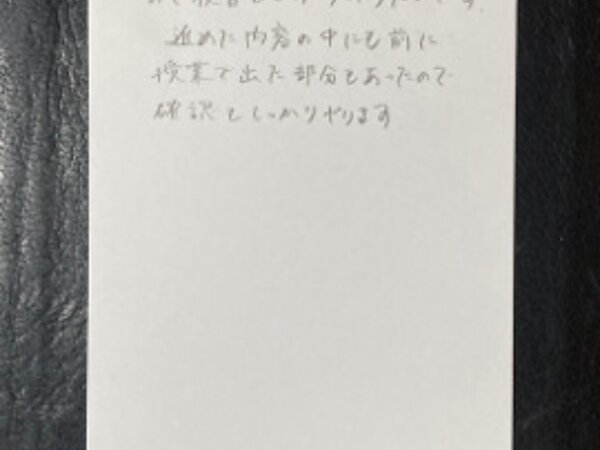 進めた内容の中にも前に
授業で出た部分もあったので
確認もしっかりやります